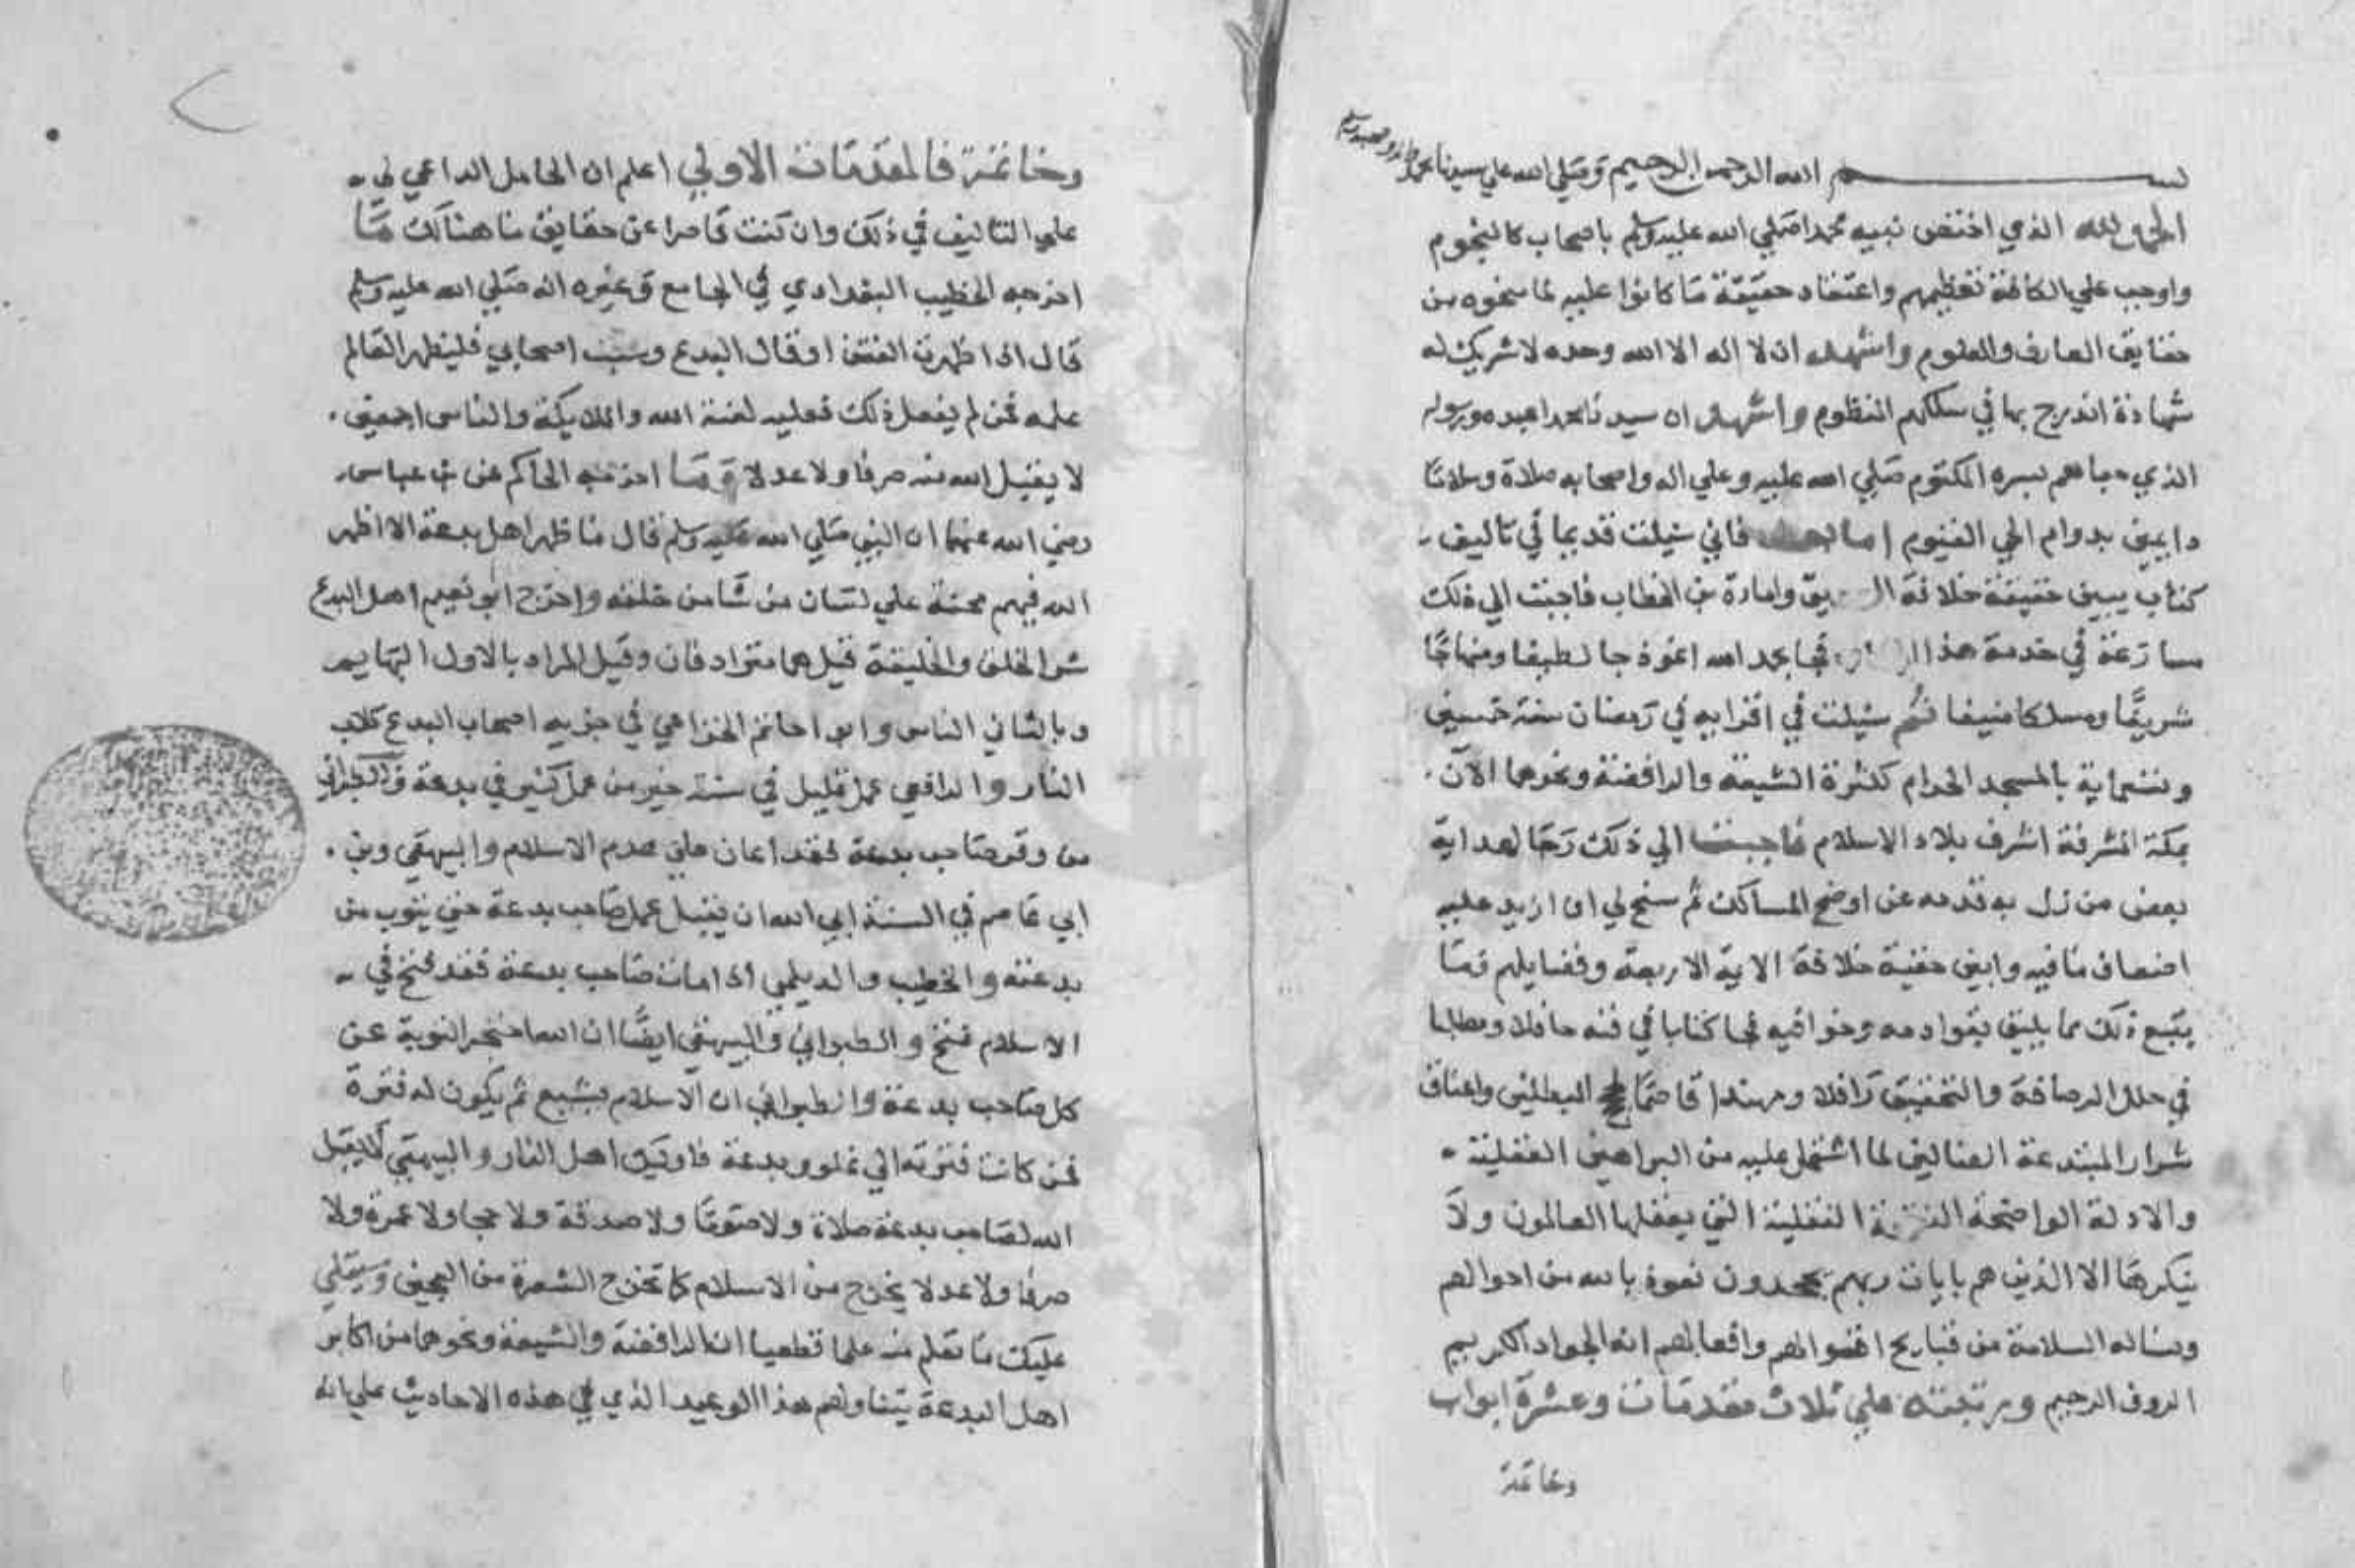 بسم الله الرحمن الرحيم وصلي الله علي سيدنا محمد واله وصحبه وسلم
الحمد لله الذي اختص نبيه محمدا صلي الله عليه وسلم باصحاب كالنجوم
واوجب علي الكافة تعظيمهم واعتقاد حقيقة ما كانوا عليه لما منحوه من
حقايق المعارف والعلوم واشهد ان لا اله الا الله وحده لا شريك له
شهادة اندرج بها في سلكهم المنظوم واشهد ان سيدنا محمدا عبده ورسوله
الذي حباهم بسره المكتوم صلي الله عليه وعلي اله واصحابه صلاة وسلاما
دايمين بدوام الحي القيوم اما بعد فاني سيلت قديما في تاليف
كتاب يبين حقيقة خلافة الصديق وامارة بن الخطاب فاجبت الي ذلك
مسارعة في خدمة هذا فجا بحمد الله انموذجا لطيفا ومنهاجا
شريفا ومسلكا منيفا ثم سيلت في اقرايه في رمضان سنة خمسين
وتسعماية بالمسجد الحرام لكثرة الشيعة والرافضة ونحوهما الآن
بمكة المشرفة اشرف بلاد الاسلام فاجبت الي ذلك رجا لهداية
بعض من زل به قدمه عن اوضح المسالك ثم سنح لي ان ازيد عليه
اضعاف ما فيه وابين حقية خلافة الايمة الاربعة وفضايلهم وما
يتبع ذلك مما يليق بقوادمه وخوافيه فجا كتابا في فنه حافلا ومطلبا
في حلل الرصافة والتحقيق رافلا ومهندا قاصما المبطلين واعناق
شرار المبتدعة الضالين لما اشتمل عليه من البراهين العقلية
والادلة الواضحة النقلية التي يعقلها العالمون ولا
ينكرها الا الذين هم بايات ربهم يجحدون نعوذ بالله من احوالهم
ونساله السلامة من قبايح اقوالهم وافعالهم انه الجواد الكريم
الروف الرحيم ورتبته علي ثلاث مقدمات وعشرة ابواب
وخاتمة
وخاتمة فالمقدمات الاولي اعلم ان الحامل الداعي لي
علي التاليف في ذلك وان كنت قاصرا عن حقايق ما هنالك ما
اخرجه الخطيب البغدادي في الجامع وغيره انه صلي الله عليه وسلم
قال اذا ظهرت الفتن او قال البدع وسب اصحابي فليظهر العالم
علمه فمن لم يفعل ذلك فعليه لعنة الله والملايكة والناس اجمعين
لا يقبل الله منه صرفا ولا عدلا وما اخرجه الحاكم عن بن عباس
رضي الله عنهما ان النبي صلي الله عليه وسلم قال ما ظهر اهل بدعة الا اظهر
الله فيهم محنة علي لسان من شا من خلقه واخرج ابو نعيم اهل البدع
شر الخلق والخليقة قيل هما مترادفان وقيل المراد بالاول البهايم
وبالثاني الناس وابو احاتم الخزاعي في جزيه اصحاب البدع كلاب
النار والرافعي عمل قليل في سنة خير من عمل كثير في بدعة والطبراني
من وقر صاحب بدعة فقد اعان علي هدم الاسلام والبيهقي وبن
ابي عاصم في السنة ابي الله ان يقبل عمل صاحب بدعة حتي يتوب من
بدعته والخطيب والديلمي اذا مات صاحب بدعة فقد فتح في
الاسلام فتح والطبراني والبيهقي ايضا ان الله احتجر التوبة عن
كل صاحب بدعة والطبراني ان الاسلام يشيع ثم يكون له فترة
فمن كانت فترته الي غلو وبدعة فاوليك اهل النار والبيهقي لا يقبل
الله لصاحب بدعة صلاة ولا صوما ولا صدقة ولا حجا ولا عمرة ولا
صرفا ولا عدلا يخرج من الاسلام كما تخرج الشعرة من العجين وسيتلي
عليك ما تعلم منه علما قطعيا ان الرافضة والشيعة ونحوهما من اكابر
اهل البدعة يتناولهم هذا الوعيد الذي في هذه الاحاديث علي انه